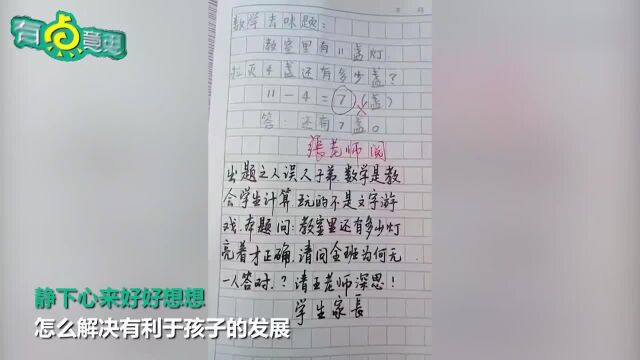 有点意思
数学去味题：
教室里有11盏灯
拉灭4盏还有多少盏？
11-4=7(盏)
答：还有7盏。
張老师阅
出题之人误人子弟.数学是教
会学生计算.玩的不是文字游
戏.本题问:教室里还有多少灯
亮着才正确.请问全班为何无
一人答对.？请王老师深思！
学生家長
静下心来好好想想
怎么解决有利于孩子的发展